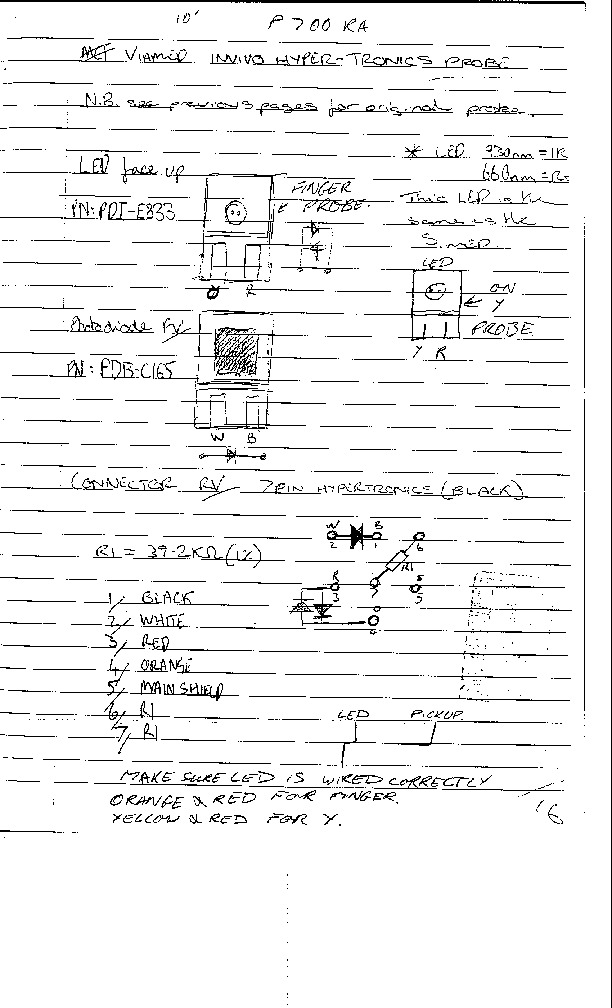 10' P700RA
VIAMED INVIVO HYPER-TRONICS PROBE
N.B. see previous pages for original probe.
* LED 930nm = IR
660nm = R
LED face up
FINGER
PROBE.
PN: PDI-E833
This LED is the
same as the
S. MED.
O R
LED
ON
Y
PROBE
Y R
Photodiode RV
PN: PDB-C165
W B
CONNECTOR RV 7 PIN HYPERTRONICS (BLACK)
W B
2 1 6
R1 = 39.2KΩ (1%)
R1
R S
3 7 5
O
1/ BLACK
2/ WHITE
3/ RED
4/ ORANGE
5/ MAIN SHIELD
6/ R1
7/ R1
LED PICKUP
MAKE SURE LED IS WIRED CORRECTLY
ORANGE & RED FOR FINGER.
YELLOW & RED FOR Y.
16